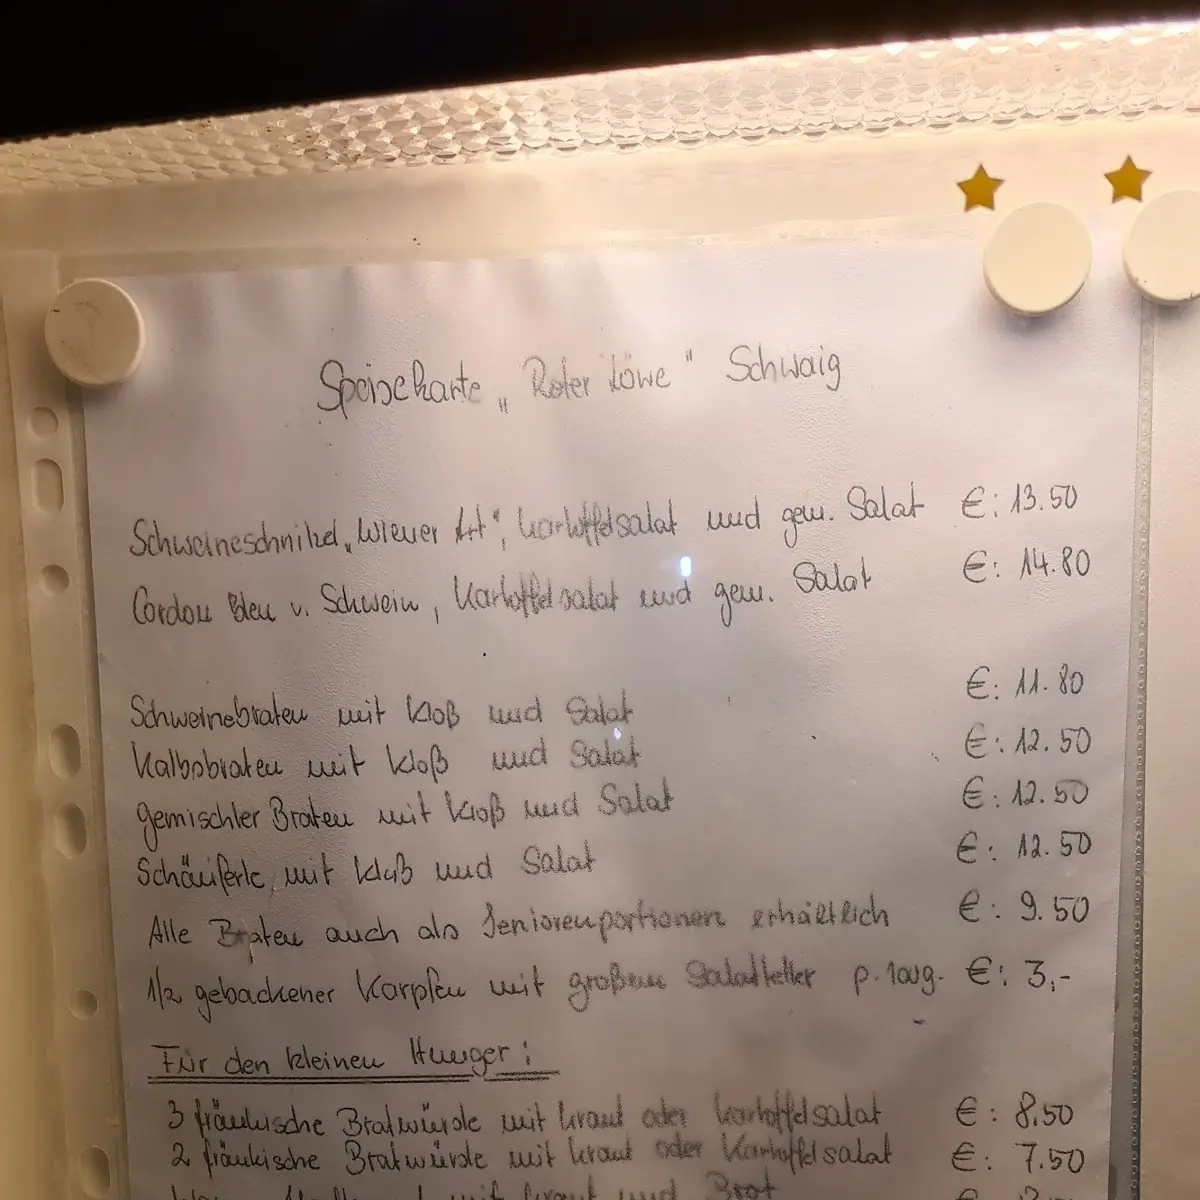 Speisekarte „Roter Löwe" Schwaig
Schweineschnitzel „Wiener Art", Kartoffelsalat und gem. Salat €: 13.50
Cordon Bleu v. Schwein, Kartoffelsalat und gem. Salat €: 14.80
Schweinebraten mit Kloß und Salat €: 11.80
Kalbsbraten mit Kloß und Salat €: 12.50
Gemischter Braten mit Kloß und Salat €: 12.50
Schäuferle mit Kloß und Salat €: 12.50
Alle Braten auch als Seniorenportionen erhältlich €: 9.50
1/2 gebackener Karpfen mit großem Salatteller p. 100g. €: 3,-
Für den kleinen Hunger:
3 fränkische Bratwürste mit Kraut oder Kartoffelsalat €: 8,50
2 fränkische Bratwürste mit Kraut oder Kartoffelsalat €: 7.50
mit Kraut und Brot